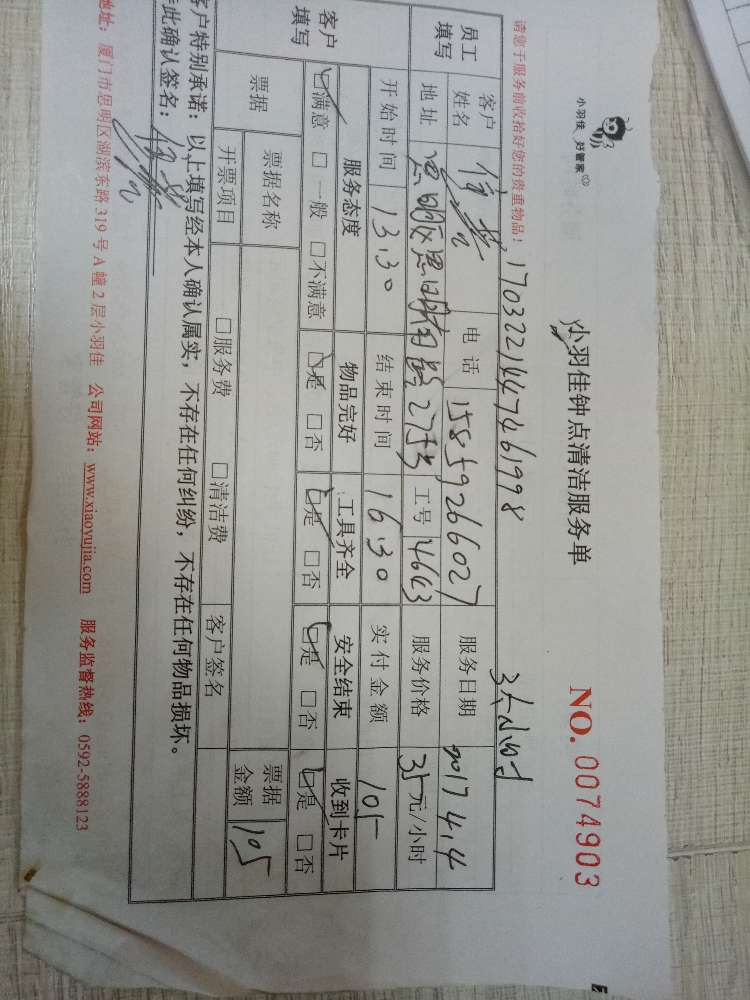 小羽佳 好管家
小羽佳钟点清洁服务单
NO. 0074903
请您于服务前收拾好您的贵重物品！
1703221447461998
3个小时
员工填写
客户姓名
电话 15859266027
服务日期 2017 4.4
地址
工号 4663
服务价格 35元/小时
开始时间 13.30
结束时间 16.30
实付金额 105
客户填写
服务态度 物品完好 工具齐全 安全结束 收到卡片
☑满意 □一般 □不满意 ☑是 □否 ☑是 □否 ☑是 □否 ☑是 □否
票据 票据名称
票据金额 105
开票项目 □服务费 □清洁费 客户签名
客户特别承诺：以上填写经本人确认属实，不存在任何纠纷，不存在任何物品损坏。
此确认签名：
地址：厦门市思明区湖滨东路319号A幢2层小羽佳 公司网站：www.xiaoyujia.com 服务监督热线：0592-5888123